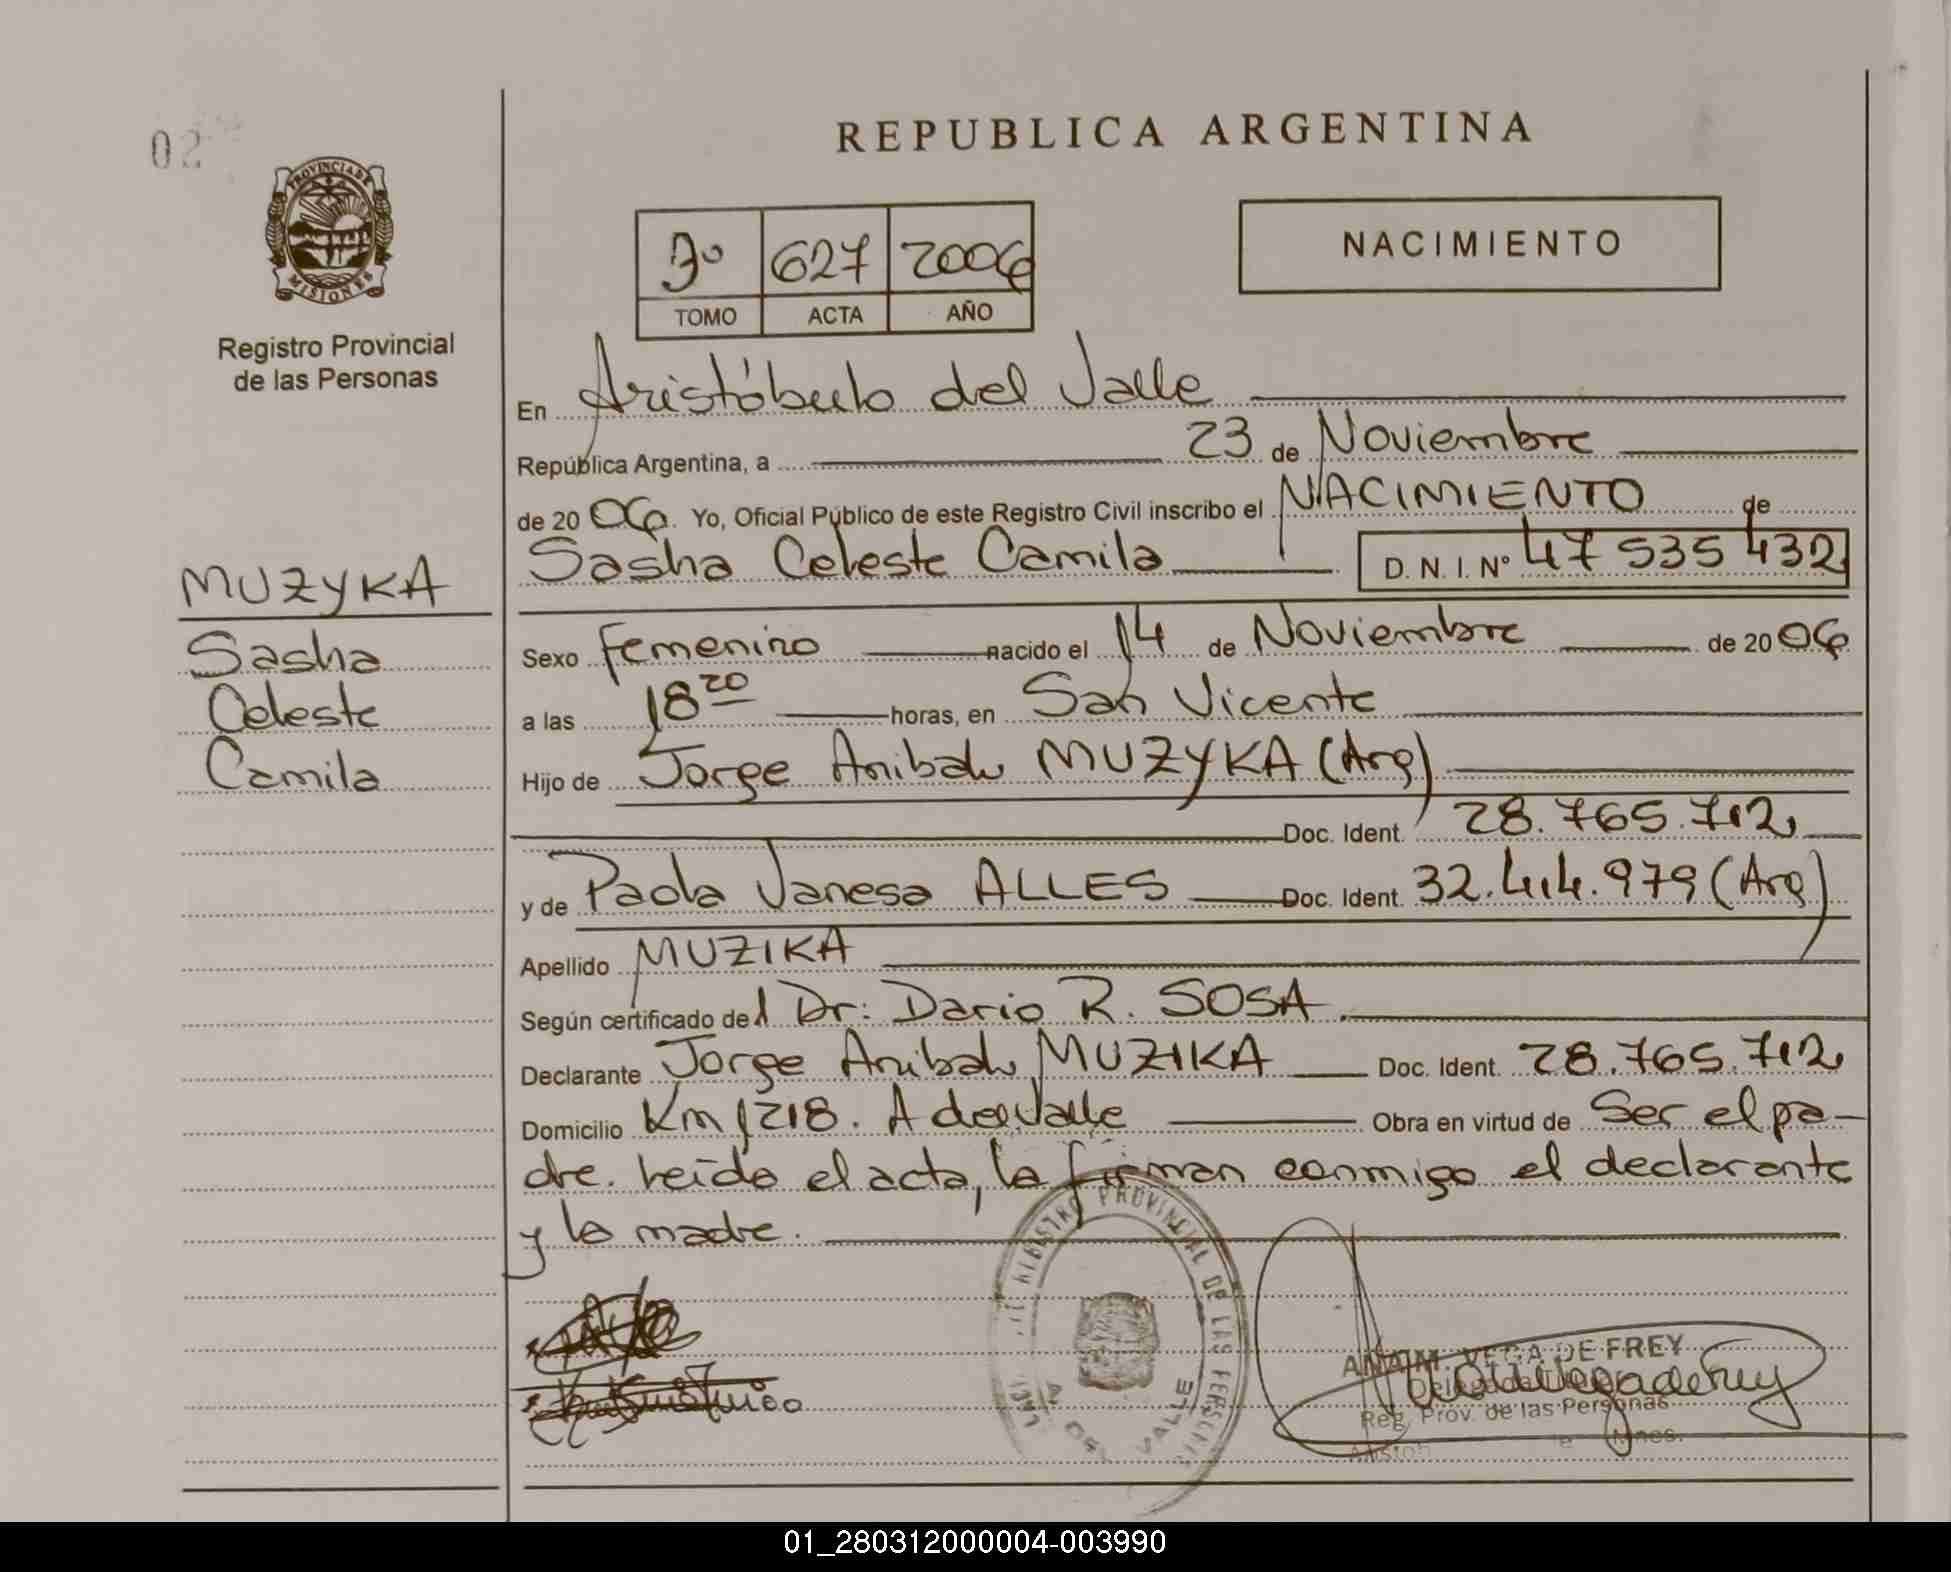 02
PROVINCIA DE
MISIONES
Registro Provincial
de las Personas
REPUBLICA ARGENTINA
3º 627 2006
TOMO ACTA AÑO
NACIMIENTO
En Aristóbulo del Valle
República Argentina, a 23 de Noviembre
de 2006. Yo, Oficial Público de este Registro Civil inscribo el NACIMIENTO de
Sasha Celeste Camila D. N. I. Nº 47 535 432
MUZYKA
Sasha
Celeste
Camila
Sexo Femenino nacido el 14 de Noviembre de 2006
a las 18 20 horas, en San Vicente
Hijo de Jorge Anibal MUZYKA (Arg)
Doc. Ident. 28.765.712
y de Paola Vanesa ALLES Doc. Ident. 32.414.979 (Arg)
Apellido MUZIKA
Según certificado del Dr: Dario R. SOSA.
Declarante Jorge Anibal MUZIKA Doc. Ident. 28.765.712
Domicilio Km 218. A del Valle Obra en virtud de Ser el pa-
dre. Leída el acta, la firman conmigo el declarante
y la madre.
REGISTRO PROVINCIAL DE LAS PERSONAS
A. DEL VALLE
ANA M. VEGA DE FREY
Reg. Prov. de las Personas
01_280312000004-003990